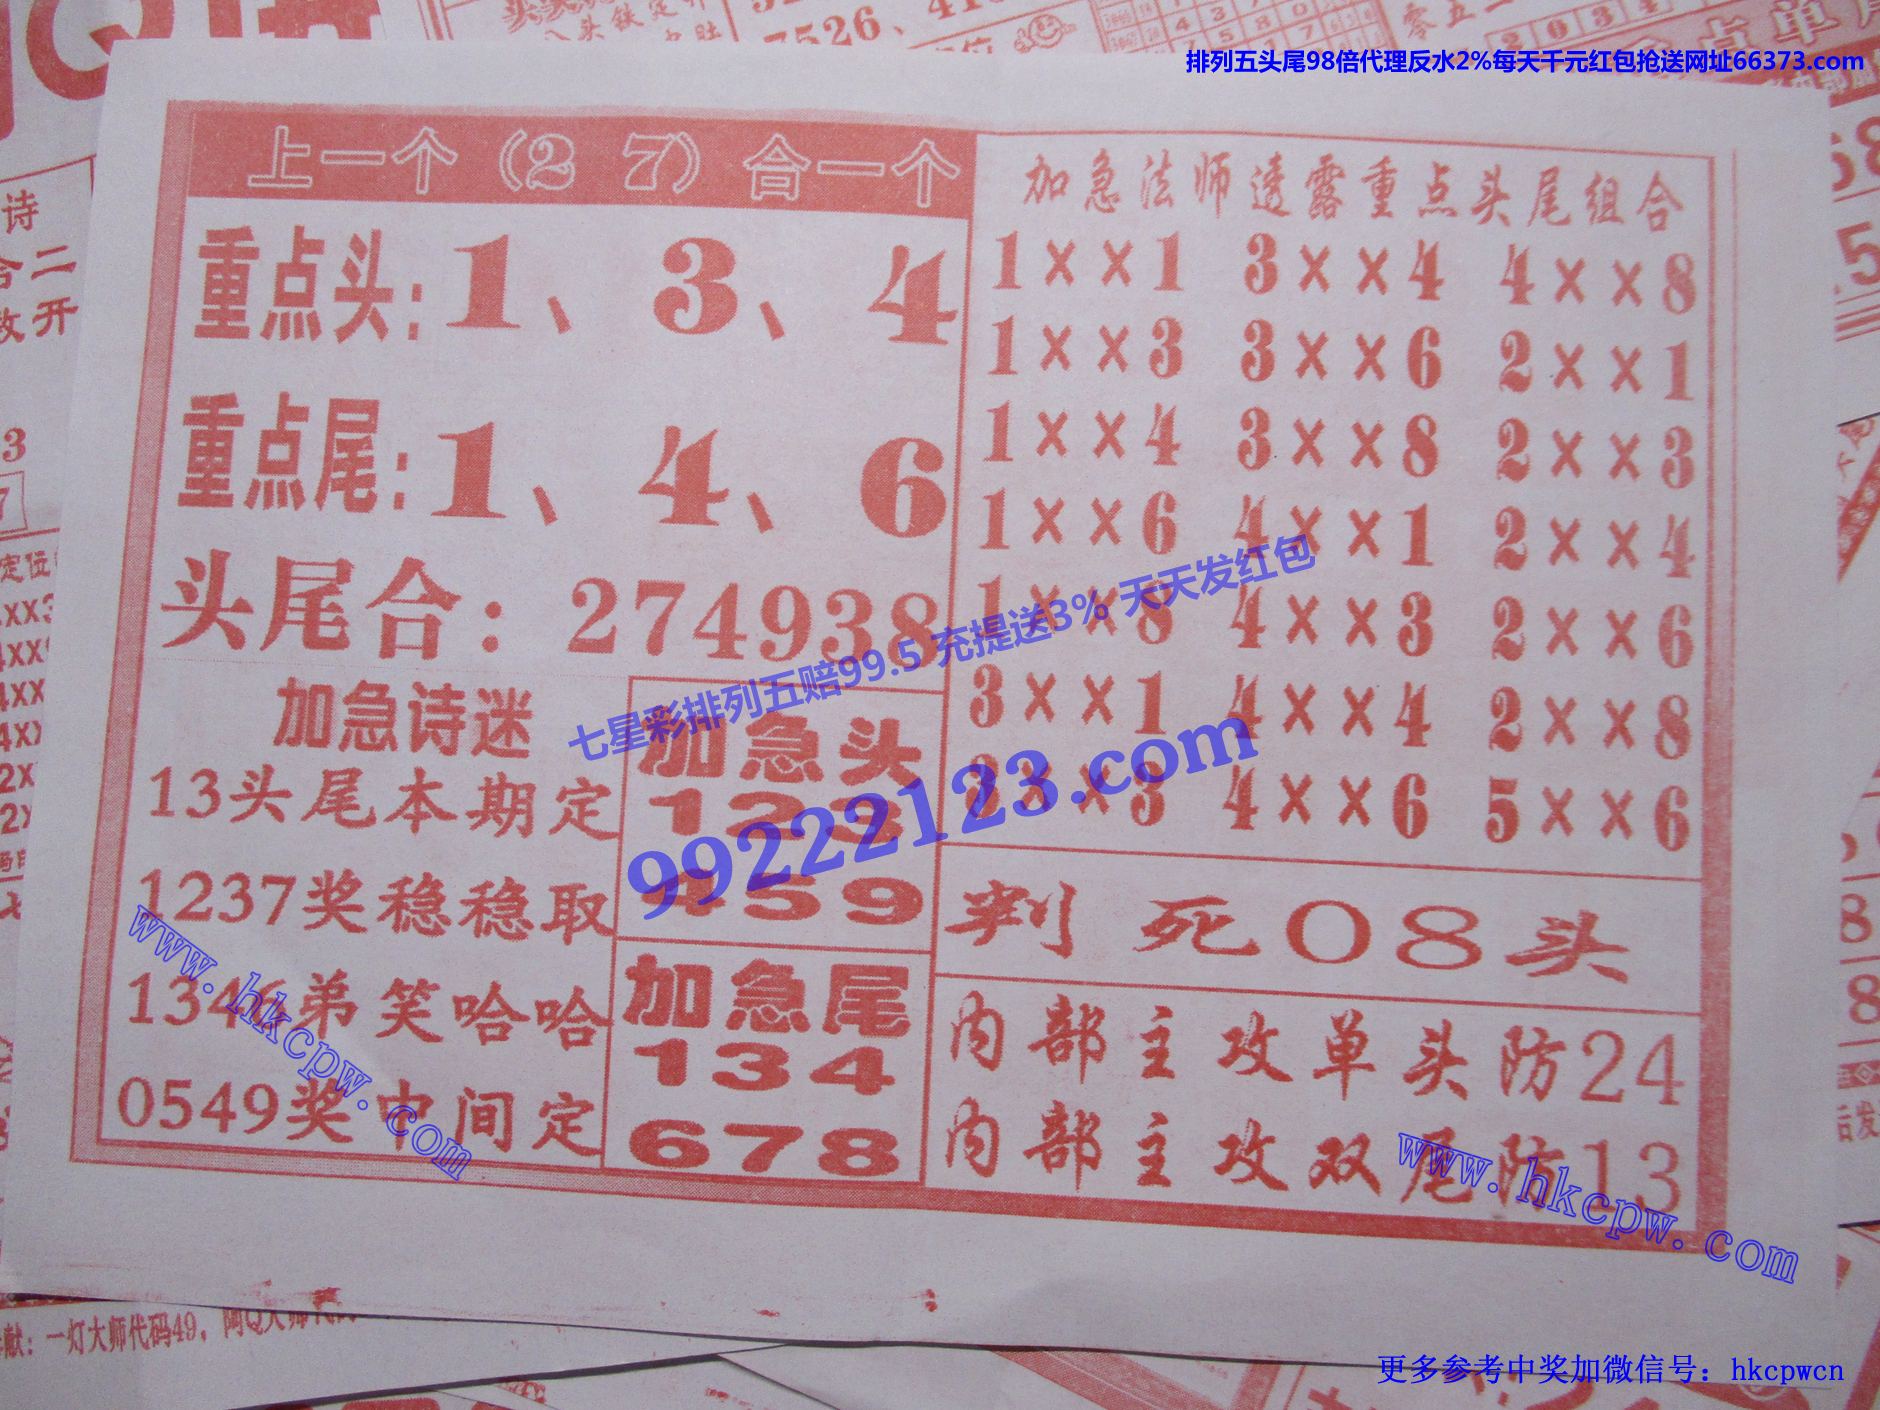 排列五头尾98倍代理反水2%每天千元红包抢送网址66373.com
7526、
上一个（2 7）合一个
重点头：1、3、4
重点尾：1、4、6
头尾合：274938
加急诗迷
13头尾本期定
1237奖稳稳取
1346弟笑哈哈
0549奖中间定
加急头
123
459
加急尾
134
678
加急法师透露重点头尾组合
1××1 3××4 4××8
1××3 3××6 2××1
1××4 3××8 2××3
1××6 4××1 2××4
1××8 4××3 2××6
3××1 4××4 2××8
3××3 4××6 5××6
判死08头
内部主攻单头防24
内部主攻双尾防13
七星彩排列五赔99.5 充提送3% 天天发红包
99222123.com
www.hkcpw.com
www.hkcpw.com
献：一灯大师代码49，阿Q大师代
更多参考中奖加微信号：hkcpwcn